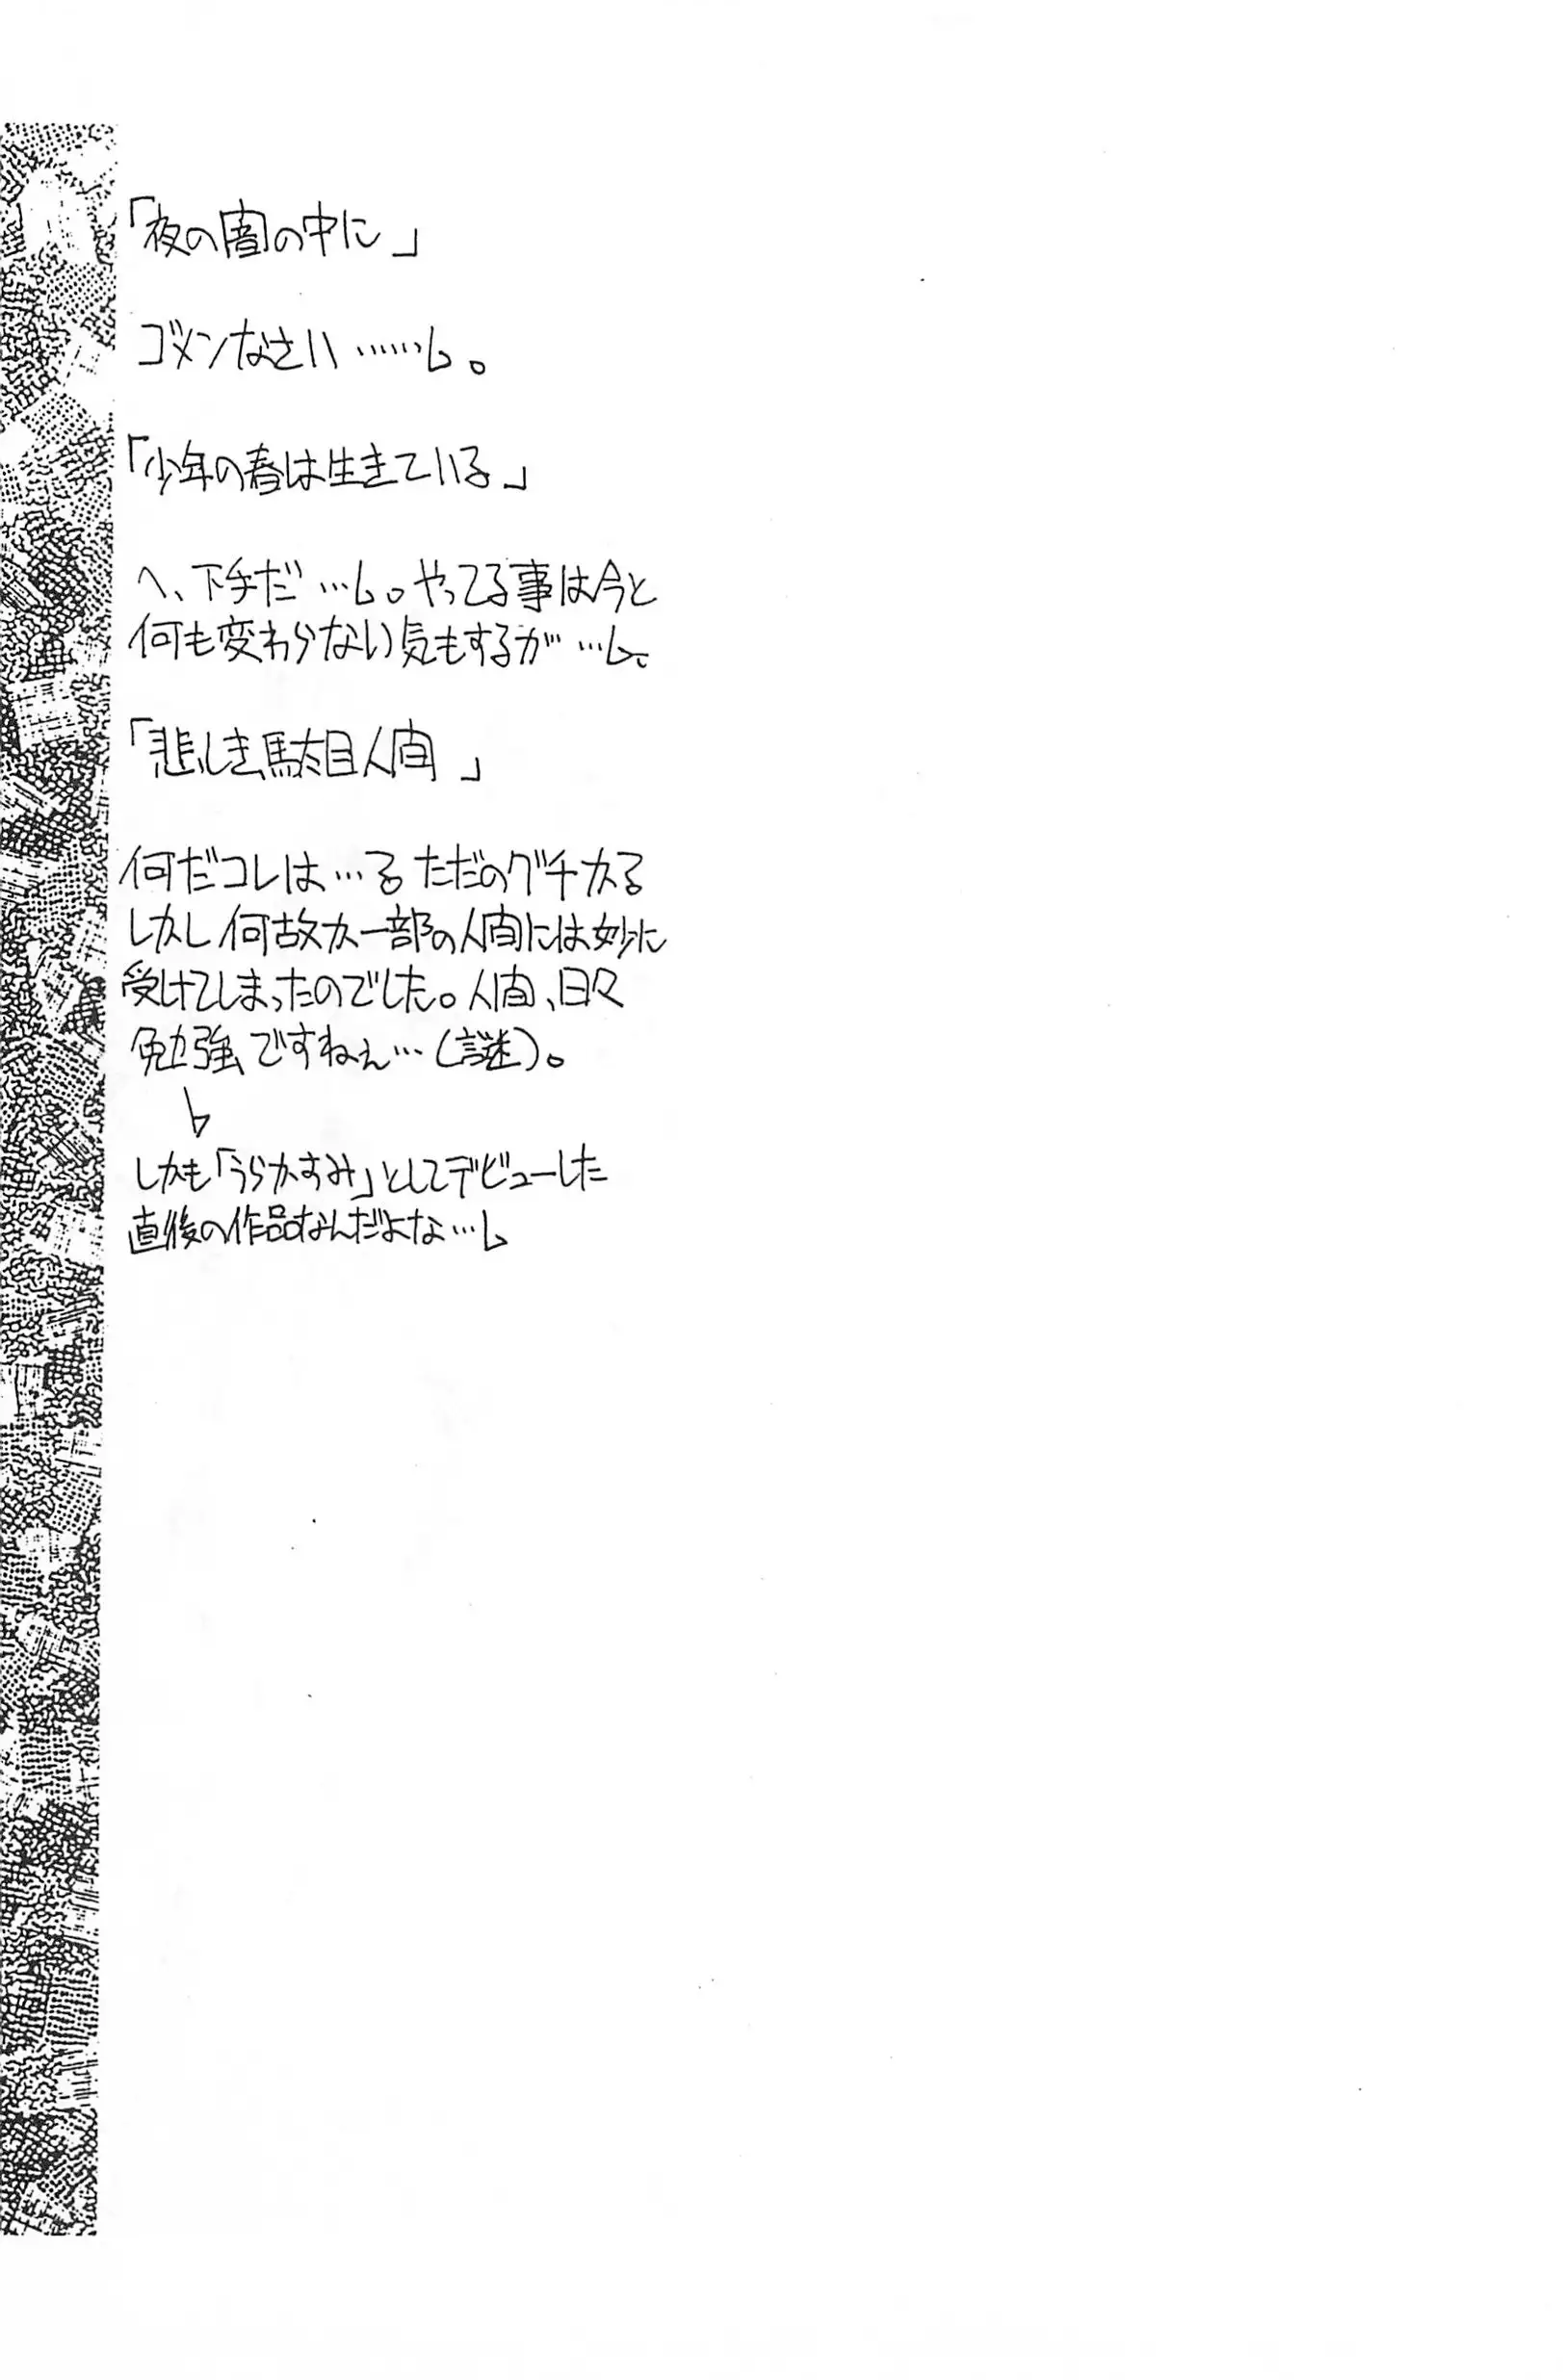 「夜の闇の中に」
ゴメンなさい……。
「少年の春は生きている」
へ、下手だ…。やってる事は今と
何も変わらない気もするが…。
「悲しき駄目人間」
何だコレは…る ただのグチかる
しかし何故か一部の人間には妙に
受けてしまったのでした。人間、日々
勉強ですねぇ…(謎)。
しかも「うらかすみ」としてデビューした
直後の作品なんだよな…